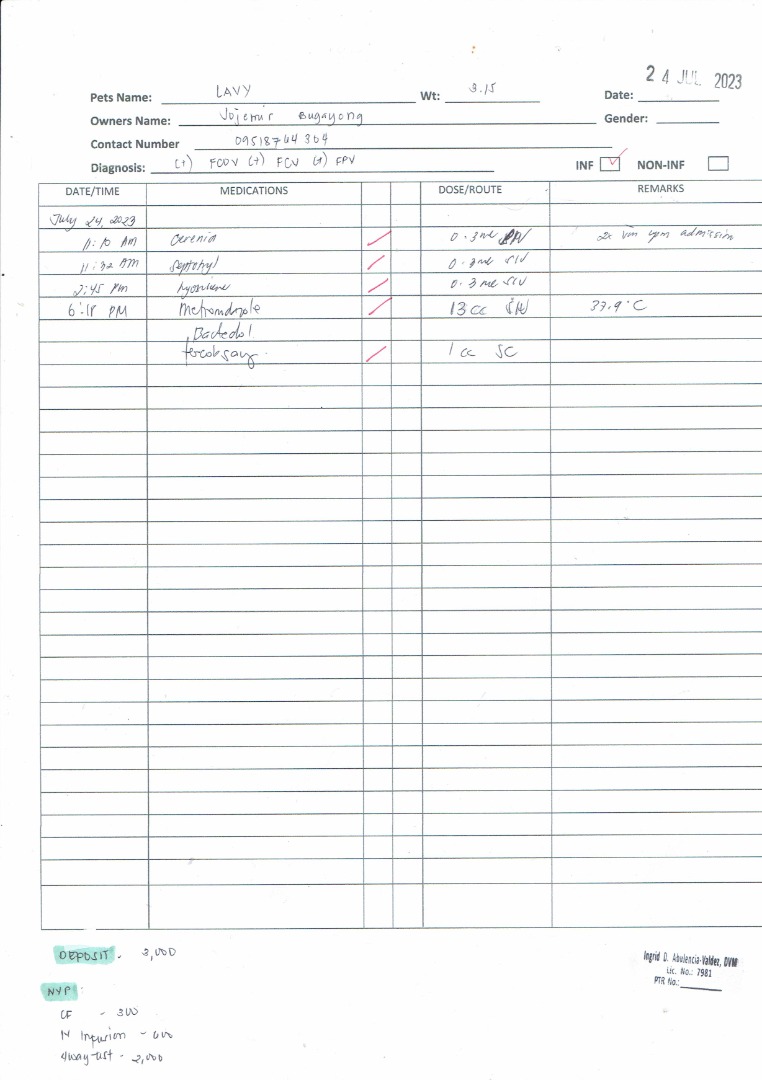 24 JUL 2023
Pets Name: LAVY Wt: 3.15 Date:
Owners Name: Jojemir Bugayong Gender:
Contact Number 09518744304
Diagnosis: (+) FCOV (+) FCV (+) FPV INF NON-INF
DATE/TIME MEDICATIONS DOSE/ROUTE REMARKS
July 24, 2023
11:10 AM Cerenia 0.3ml 2x vm upm admission
11:32 AM Septotryl 0.3ml SIV
2:45 PM 0.3ml SIV
6:18 PM Metronidzole 13cc SIV 37.9°C
Bactedol
fercobsang 1cc SC
DEPOSIT - 3,000
NYP:
CF - 300
IV Infusion - 600
4way-test - 2,000
Ingrid D. Abulencia-Valdez, DVM
Lic. No.: 7981
PTR No.: